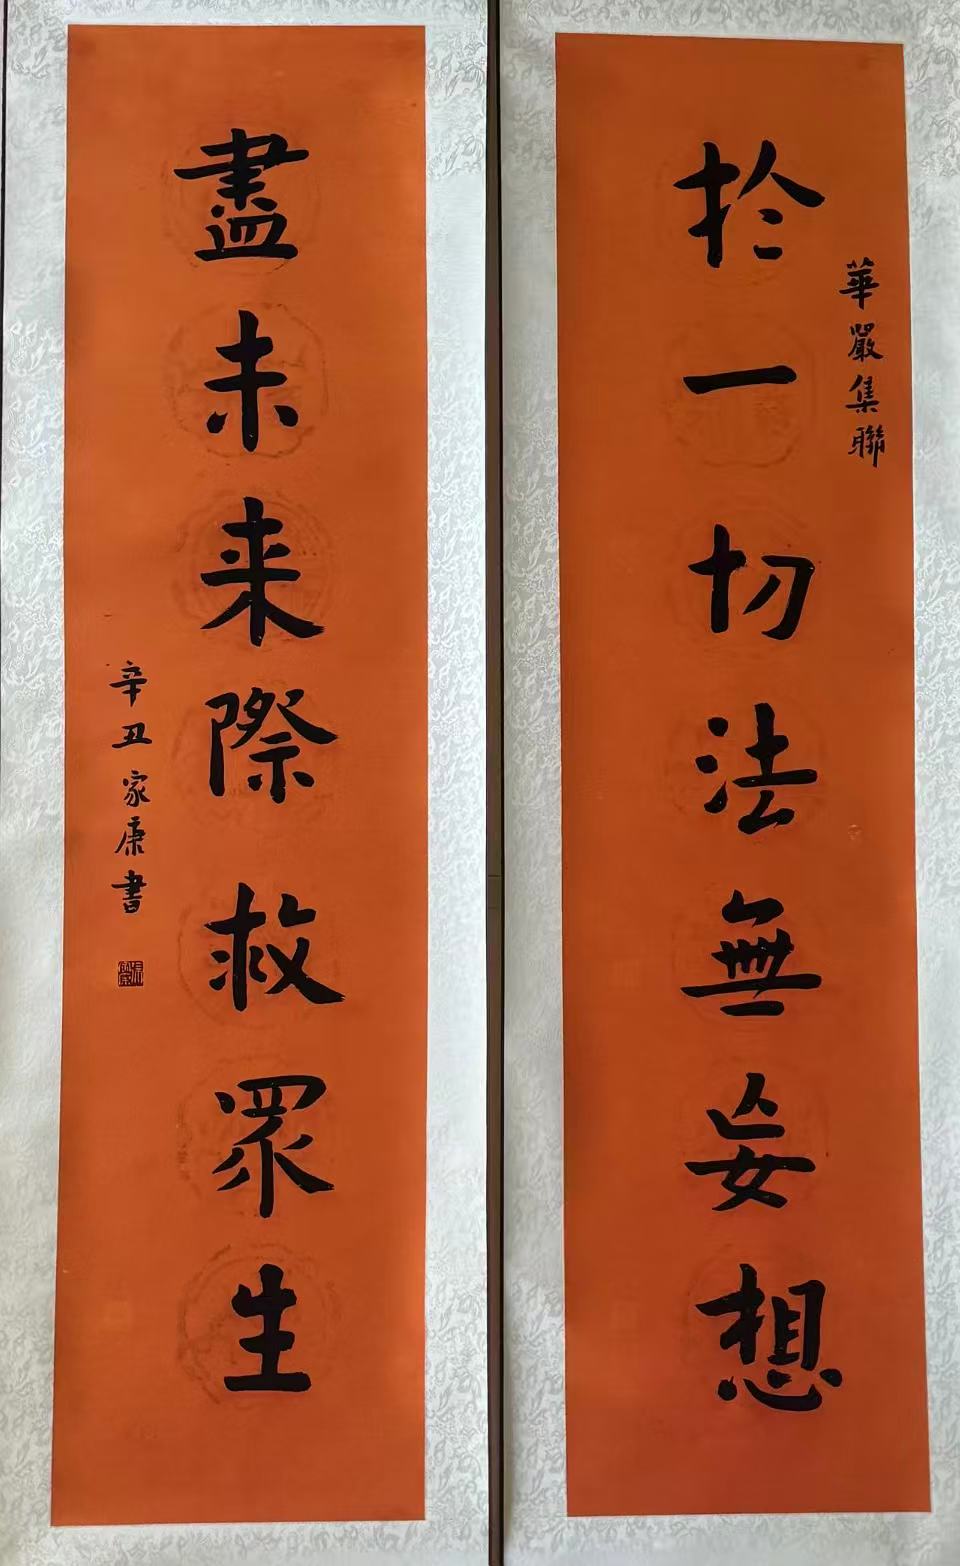 華嚴集聯
於一切法無妄想
盡未来際救眾生
辛丑家康書